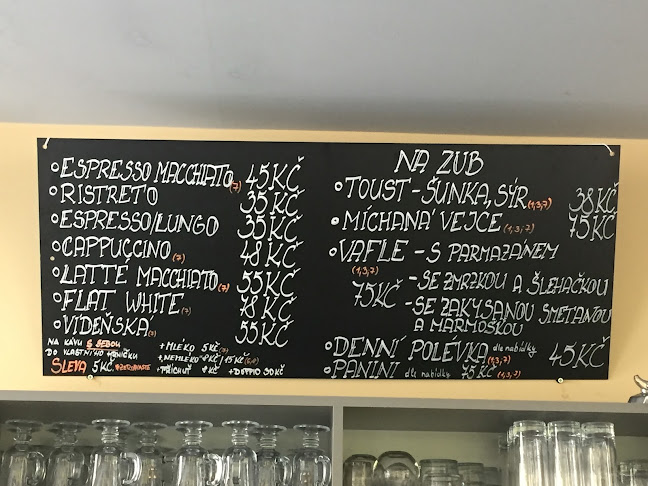 ESPRESSO MACCHIATO (7) 45 KČ
RISTRETO 35 KČ
ESPRESSO/LUNGO 35 KČ
CAPPUCCINO (7) 48 KČ
LATTE MACCHIATO (7) 55 KČ
FLAT WHITE (7) 78 KČ
VÍDEŇSKÁ (7) 55 KČ
NA KÁVU S SEBOU
DO VLASTNÍHO HRNÍČKU
SLEVA 5 KČ #ZEROWASTE
+ MLÉKO 5 KČ (7)
+ NEMLÉKO 8 KČ / 15 KČ
+ PŘÍCHUŤ 8 KČ + DEPPO 50 KČ
NA ZUB
TOUST - ŠUNKA, SÝR (1,3,7) 38 KČ
MÍCHANÁ VEJCE (1,3,7) 75 KČ
VAFLE - S PARMAZÁNEM
(1,3,7)
75 KČ - SE ZMRZKOU A ŠLEHAČKOU
- SE ZAKYSANOU SMETANOU
A MARMOŠKOU
DENNÍ POLÉVKA dle nabídky (1,3,7) 45 KČ
PANINI dle nabídky 75 KČ (1,3,7)